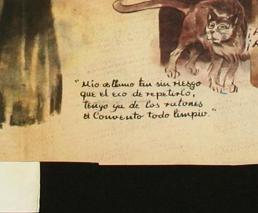 "Mio os llamo tan sin riesgo
que el eco de repetirlo,
tengo ya de los ratones
el Convento todo limpio".